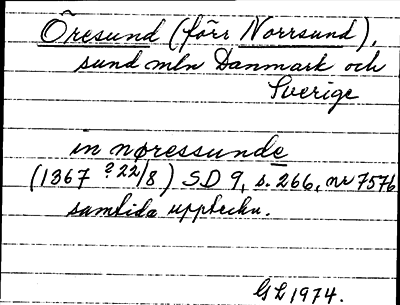 Öresund (förr Norrsund),
sund mln Danmark och
Sverige
in nøressunde
(1367 ?22/8) SD 9, s. 266, nr 7576
samtida uppteckn.
GL 1974.